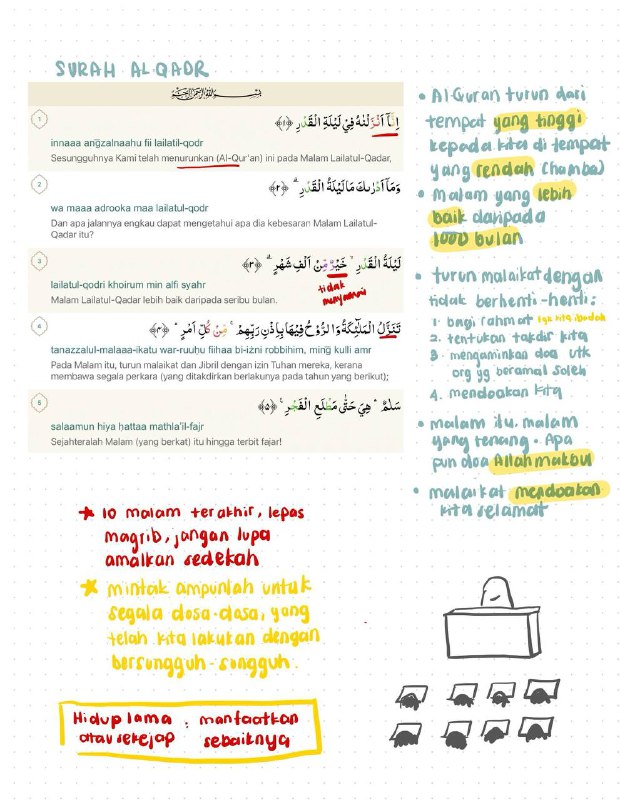 SURAH AL-QADR
بِسْمِ اللَّهِ الرَّحْمَٰنِ الرَّحِيمِ
1
اِنَّآ اَنْزَلْنٰهُ فِيْ لَيْلَةِ الْقَدْرِ ﴿١﴾
innaaa angzalnaahu fii lailatil-qodr
Sesungguhnya Kami telah menurunkan (Al-Qur'an) ini pada Malam Lailatul-Qadar,
2
وَمَآ اَدْرٰىكَ مَا لَيْلَةُ الْقَدْرِ ۗ ﴿٢﴾
wa maaa adrooka maa lailatul-qodr
Dan apa jalannya engkau dapat mengetahui apa dia kebesaran Malam Lailatul-
Qadar itu?
3
لَيْلَةُ الْقَدْرِ ۙ خَيْرٌ مِّنْ اَلْفِ شَهْرٍ ۗ ﴿٣﴾
lailatul-qodri khoirum min alfi syahr
tidak
menyamai
Malam Lailatul-Qadar lebih baik daripada seribu bulan.
4
تَنَزَّلُ الْمَلٰٓئِكَةُ وَالرُّوْحُ فِيْهَا بِاِذْنِ رَبِّهِمْ ۚ مِنْ كُلِّ اَمْرٍ ۛ ﴿٤﴾
tanazzalul-malaaa-ikatu war-ruuhu fiihaa bi-izni robbihim, ming kulli amr
Pada Malam itu, turun malaikat dan Jibril dengan izin Tuhan mereka, kerana
membawa segala perkara (yang ditakdirkan berlakunya pada tahun yang berikut);
5
سَلٰمٌ ۛ هِيَ حَتّٰى مَطْلَعِ الْفَجْرِ ﴿٥﴾
salaamun hiya hattaa mathla'il-fajr
Sejahteralah Malam (yang berkat) itu hingga terbit fajar!
• Al-Quran turun dari
tempat yang tinggi
kepada kita di tempat
yang rendah (hamba)
• Malam yang lebih
baik daripada
1000 bulan
• turun malaikat dengan
tidak berhenti-henti:
1. bagi rahmat kita ibadah
2. tentukan takdir kita
3. mengaminkan doa utk
org yg beramal soleh
4. mendoakan kita
• malam itu, malam
yang tenang. Apa
pun doa Allah makbul
• malaikat mendoakan
kita selamat
★ 10 malam terakhir, lepas
magrib, jangan lupa
amalkan sedekah
★ mintak ampunlah untuk
segala dosa-dosa, yang
telah kita lakukan dengan
bersungguh-sungguh.
Hidup lama : manfaatkan
atau sekejap sebaiknya